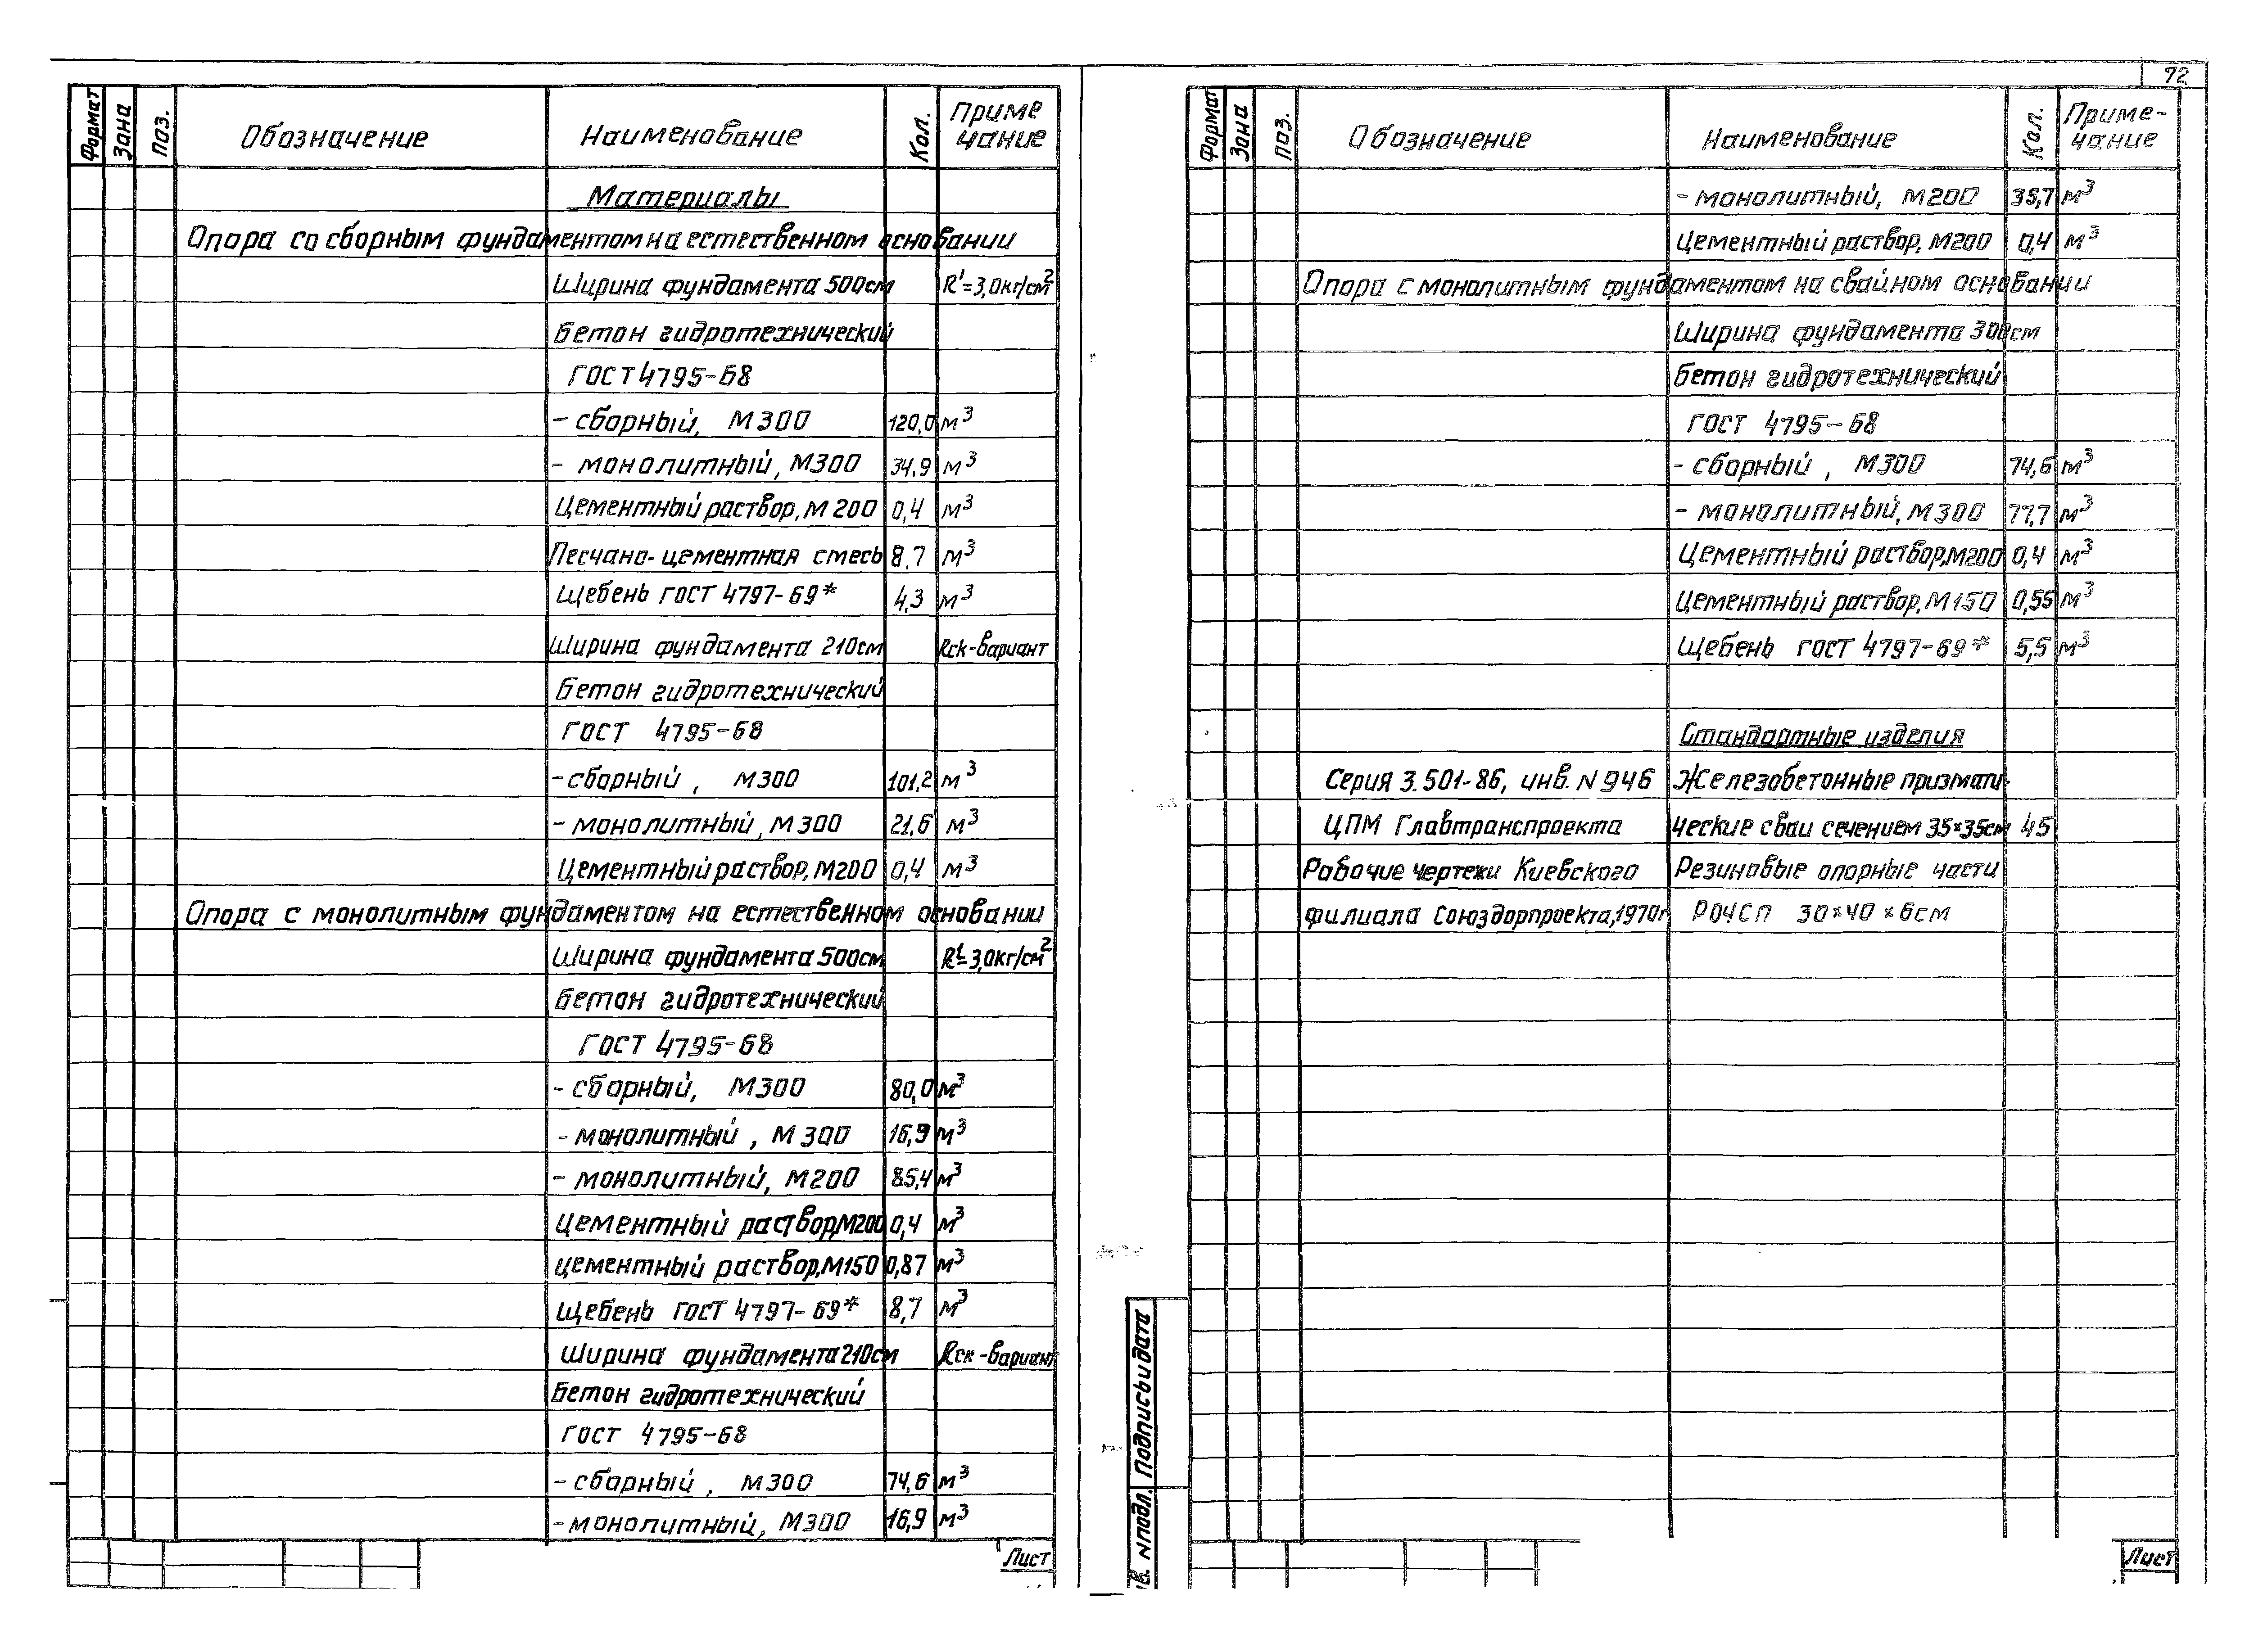 72
Формат Зона Поз. Обозначение Наименование Кол. Приме чание
Материалы
Опора со сборным фундаментом на естественном основании
Ширина фундамента 500см R'=3,0кг/см²
Бетон гидротехнический
ГОСТ 4795-68
- сборный, М300 120,0 м³
- монолитный, М300 34,9 м³
Цементный раствор, М200 0,4 м³
Песчано-цементная смесь 8,7 м³
Щебень ГОСТ 4797-69* 4,3 м³
Ширина фундамента 210см Rск-вариант
Бетон гидротехнический
ГОСТ 4795-68
- сборный, М300 101,2 м³
- монолитный, М300 21,6 м³
Цементный раствор, М200 0,4 м³
Опора с монолитным фундаментом на естественном основании
Ширина фундамента 500см R'=3,0кг/см²
Бетон гидротехнический
ГОСТ 4795-68
- сборный, М300 80,0 м³
- монолитный, М300 16,9 м³
- монолитный, М200 85,4 м³
Цементный раствор, М200 0,4 м³
Цементный раствор, М150 0,87 м³
Щебень ГОСТ 4797-69* 8,7 м³
Ширина фундамента 210см Rск-вариант
Бетон гидротехнический
ГОСТ 4795-68
- сборный, М300 74,6 м³
- монолитный, М300 16,9 м³
Лист
Формат Зона Поз. Обозначение Наименование Кол. Приме- чание
- монолитный, М200 35,7 м³
Цементный раствор, М200 0,4 м³
Опора с монолитным фундаментом на свайном основании
Ширина фундамента 300см
Бетон гидротехнический
ГОСТ 4795-68
- сборный, М300 74,6 м³
- монолитный, М300 77,7 м³
Цементный раствор, М200 0,4 м³
Цементный раствор, М150 0,55 м³
Щебень ГОСТ 4797-69* 5,5 м³
Стандартные изделия
Серия 3.501-86, инв. N 946 Железобетонные призмати-
ЦПМ Главтранспроекта ческие сваи сечением 35×35см 45
Рабочие чертежи Киевского Резиновые опорные части
филиала Союздорпроекта, 1970г РОЧСП 30×40×6см
Подпись и дата
N подл.
Лист